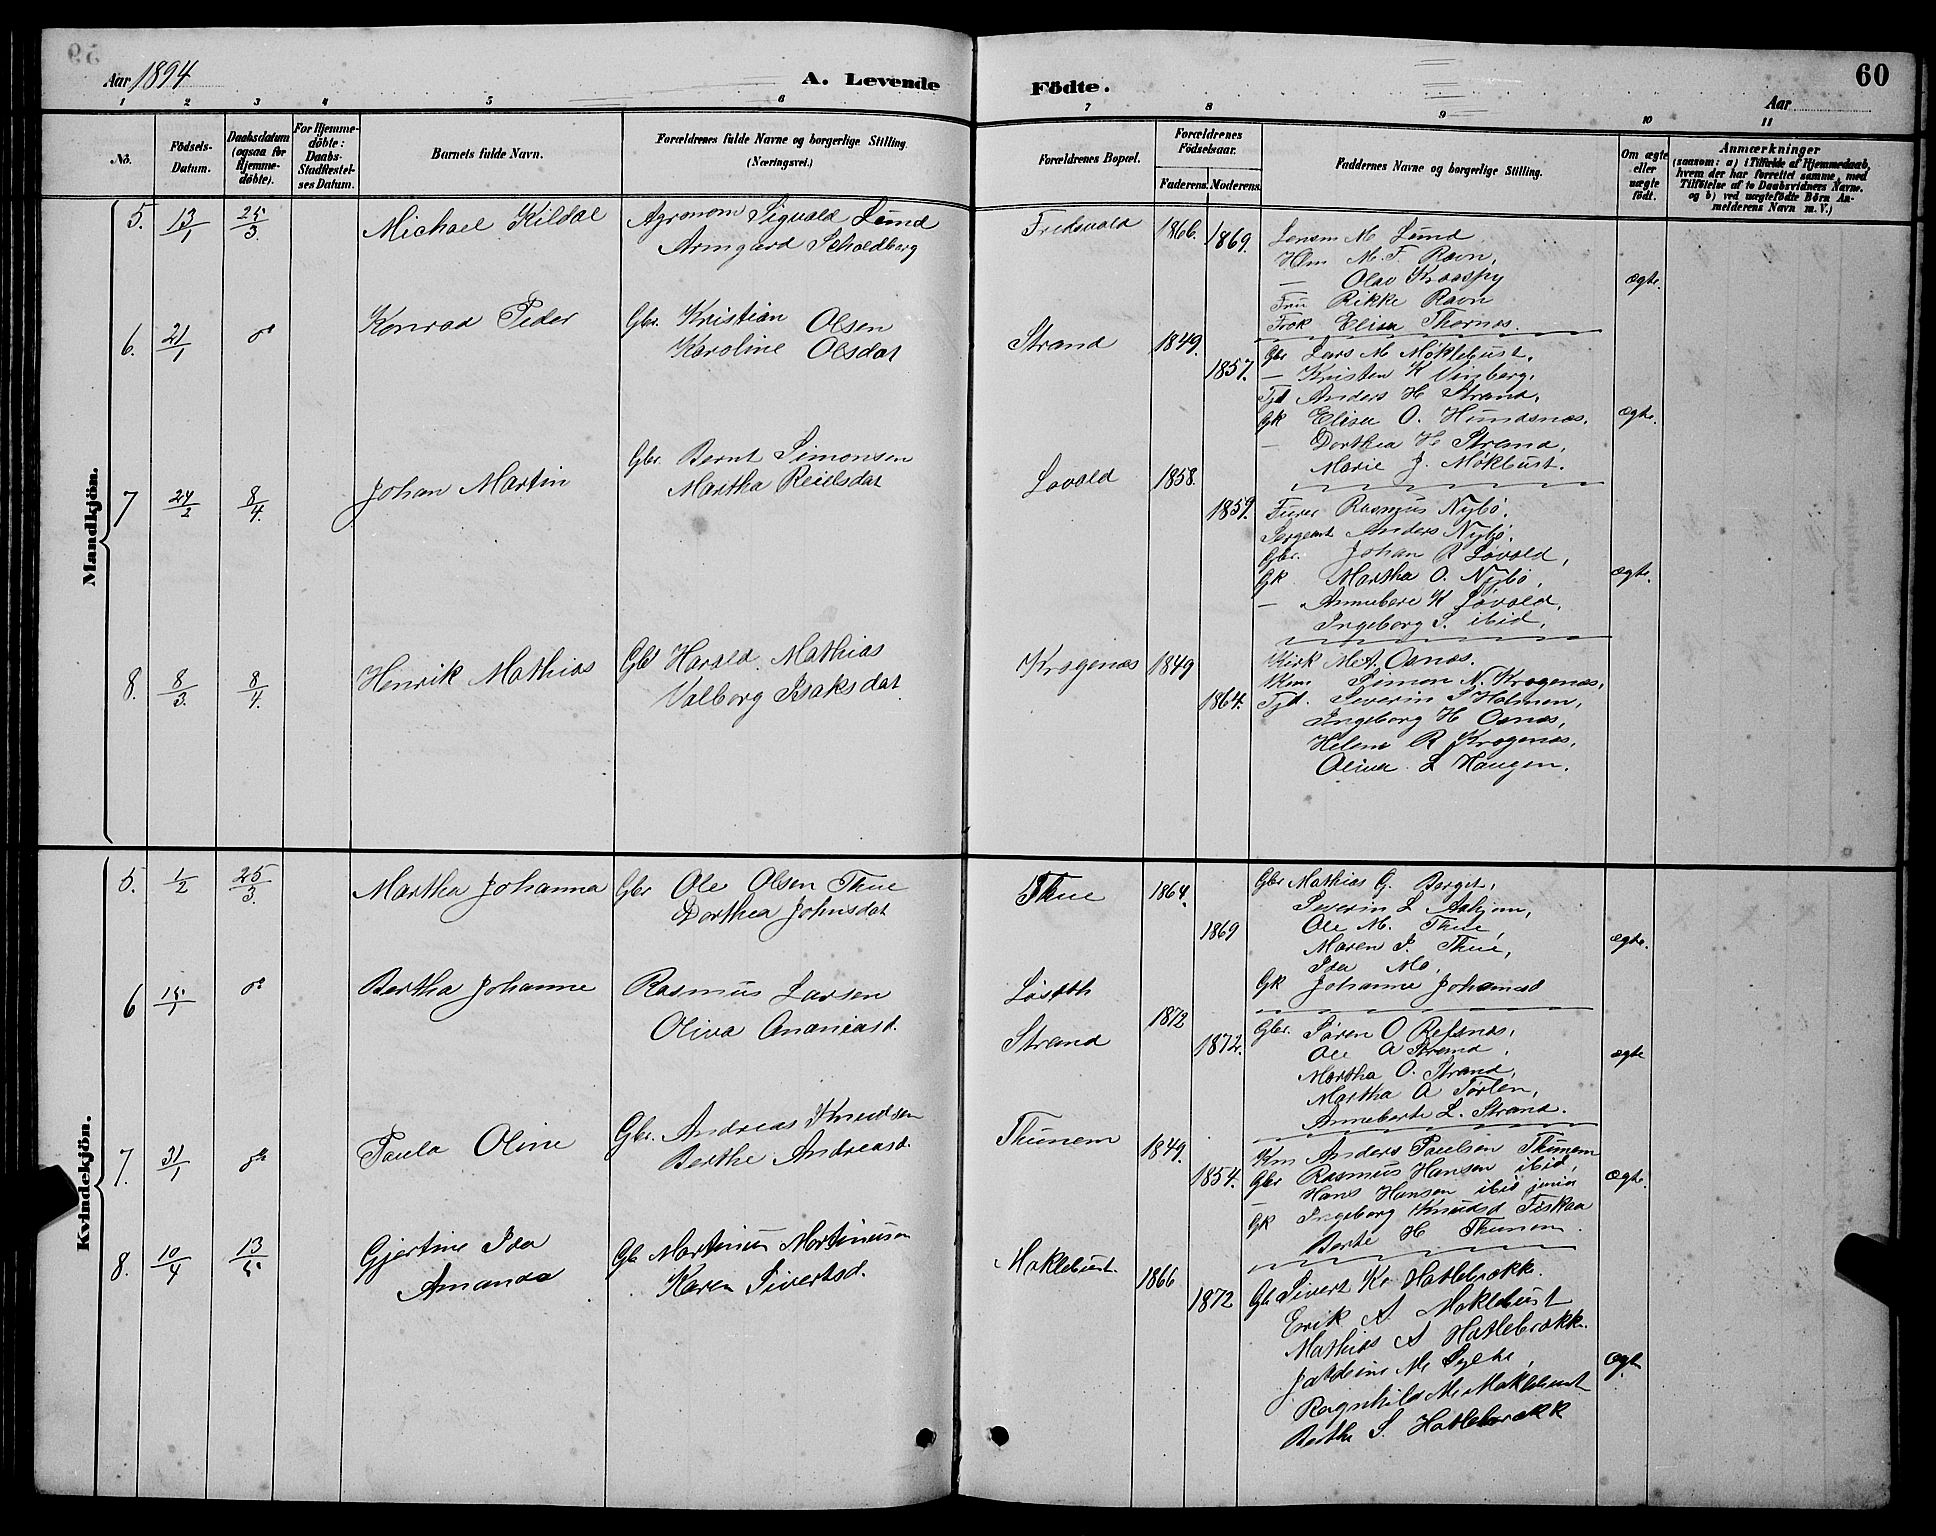 59
Aar 1894
A. Levende
Födte.
60
Aar
1 2 3 4 5 6 7 8 9 10 11
No.
Födsels-
Datum.
Daabsdatum
(ogsaa for
Hjemme-
döbte).
For Hjemme-
döbte:
Daabs-
Stadfæstel-
ses Datum.
Barnets fulde Navn.
Forældrenes fulde Navne og borgerlige Stilling.
(Næringsvei.)
Forældrenes Bopæl.
Forældrenes
Födselsaar.
Faderens. Moderens.
Faddernes Navne og borgerlige Stilling.
Om ægte
eller
uægte
födt.
Anmærkninger
(saasom: a) i Tilfælde af Hjemmedaab,
hvem der har forrettet samme, med
Tilföielse af to Daabsvidners Navne.
og b) ved uægtefödte Börn An-
melderens Navn m. V.)
Mandkjön.
5. 13/1 25/3. Michael Kildal
Agronom Sigvald Lund
Armgard Scholdberg
Fredsvold 1866. 1869.
Lensm M Lund
Hlm M. F. Ravn,
— Olav
Fru Rikke Ravn
Frøk Elisa Thornæs.
ægte.
6. 21/1 do Konrad Peder
Gbr. Kristian Olsen
Karoline Olsdat
Strand 1849. 1857.
Gbr Lars M Møklebust,
— Kristen K Vinberg,
Tjd Anders H Strand,
Gk Elisa O. Hundsnæs.
— Dorthea H Strand,
Marie J. Møklbust.
ægte.
7 24/2 8/4. Johan Martin
Gbr. Bernt Simonsen
Martha Reielsdat
Løvold 1858. 1859.
Furer Rasmus Nybø.
Sergeant Anders Nybø.
Gbr. Johan R Løvold,
Gk Martha O. Nybø,
— Anneberte K Løvold,
Ingeborg S. ibid,
ægte.
8. 8/3. 8/4. Henrik Mathias
Gbr Harald Mathias
Valborg Isaksdat
Kragenæs 1849 1864.
Kirk M A. Osnæs.
Km Simon N. Kragenæs,
Tjd. Severin S Holmen,
Ingeborg H Osnæs,
Helene R Kragenæs,
Olina L Haugen.
Kvindekjön.
5. 1/2 25/3. Martha Johanna
Gbr Ole Olsen Thue
Dorthea Johnsdat
Thue 1864. 1869
Gbr Mathias G. Berget,
Severin L
Ole M. Thue,
Maren P. Thue,
Ida Mo,
Gk Johanne Johansd
ægte.
6 15/1 do Bertha Johanne
Rasmus Larsen
Oliva Ananiasd.
Løseth
Strand 1872 1872.
Gbr. Søren O Refsnæs,
Ole A Strand,
Martha O. Strand,
Martha A Tørlen,
Anneberte L. Strand.
ægte
7. 31/1 do Paula Oline
Gbr. Andreas Knudsen
Berthe Andreasd.
Thunem 1849. 1854.
Km Anders Paulsen Thunem
Gbr Rasmus Hansen ibid,
— Hans Hansen ibid junior
Gk Ingeborg Knudsd Fiskaa
Berte H Thunem.
ægte.
8. 10/4 13/5 Gjertine Ida
Amanda
Gb Martinus Martinussen
Karen Sivertsd.
Maklebust 1866 1872
Gb Sivert Kr Hatlebrække.
Erik A. Maklebust
Mathias A Hatlebrække.
M Sylte,
Ragnhild M Maklebust
Berthe S. Hatlebrækk
ægt.